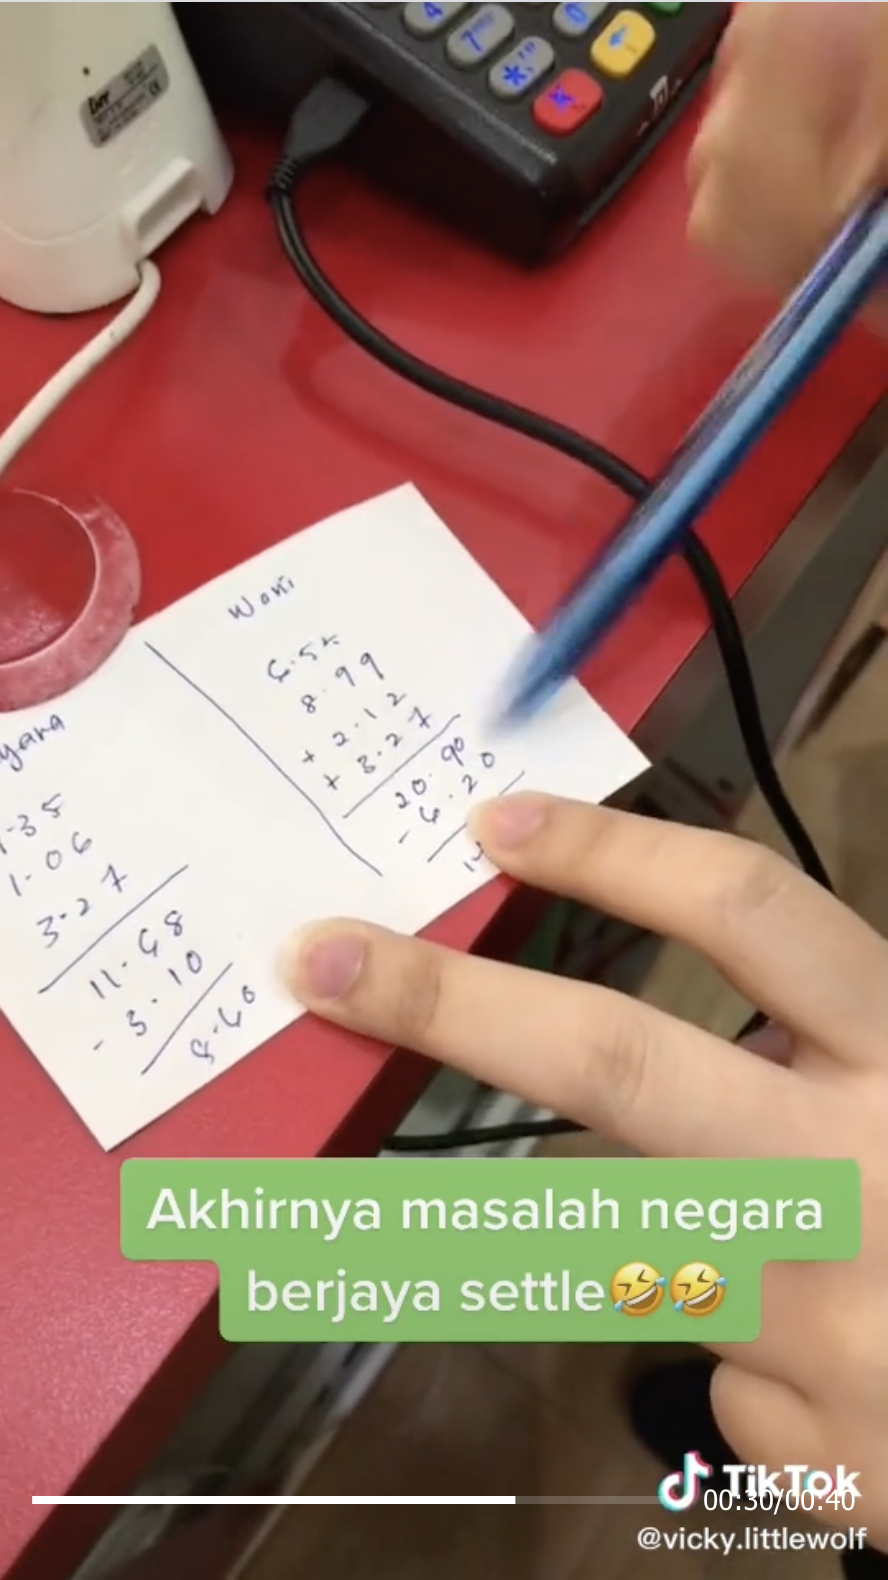 4
7
0
*
Wani
6.52
8.99
+ 2.12
+ 3.27
20.90
- 6.20
yana
.35
1.06
3.27
11.68
- 3.10
8.60
Akhirnya masalah negara
berjaya settle🤣🤣
TikTok
00:30/00:40
@vicky.littlewolf